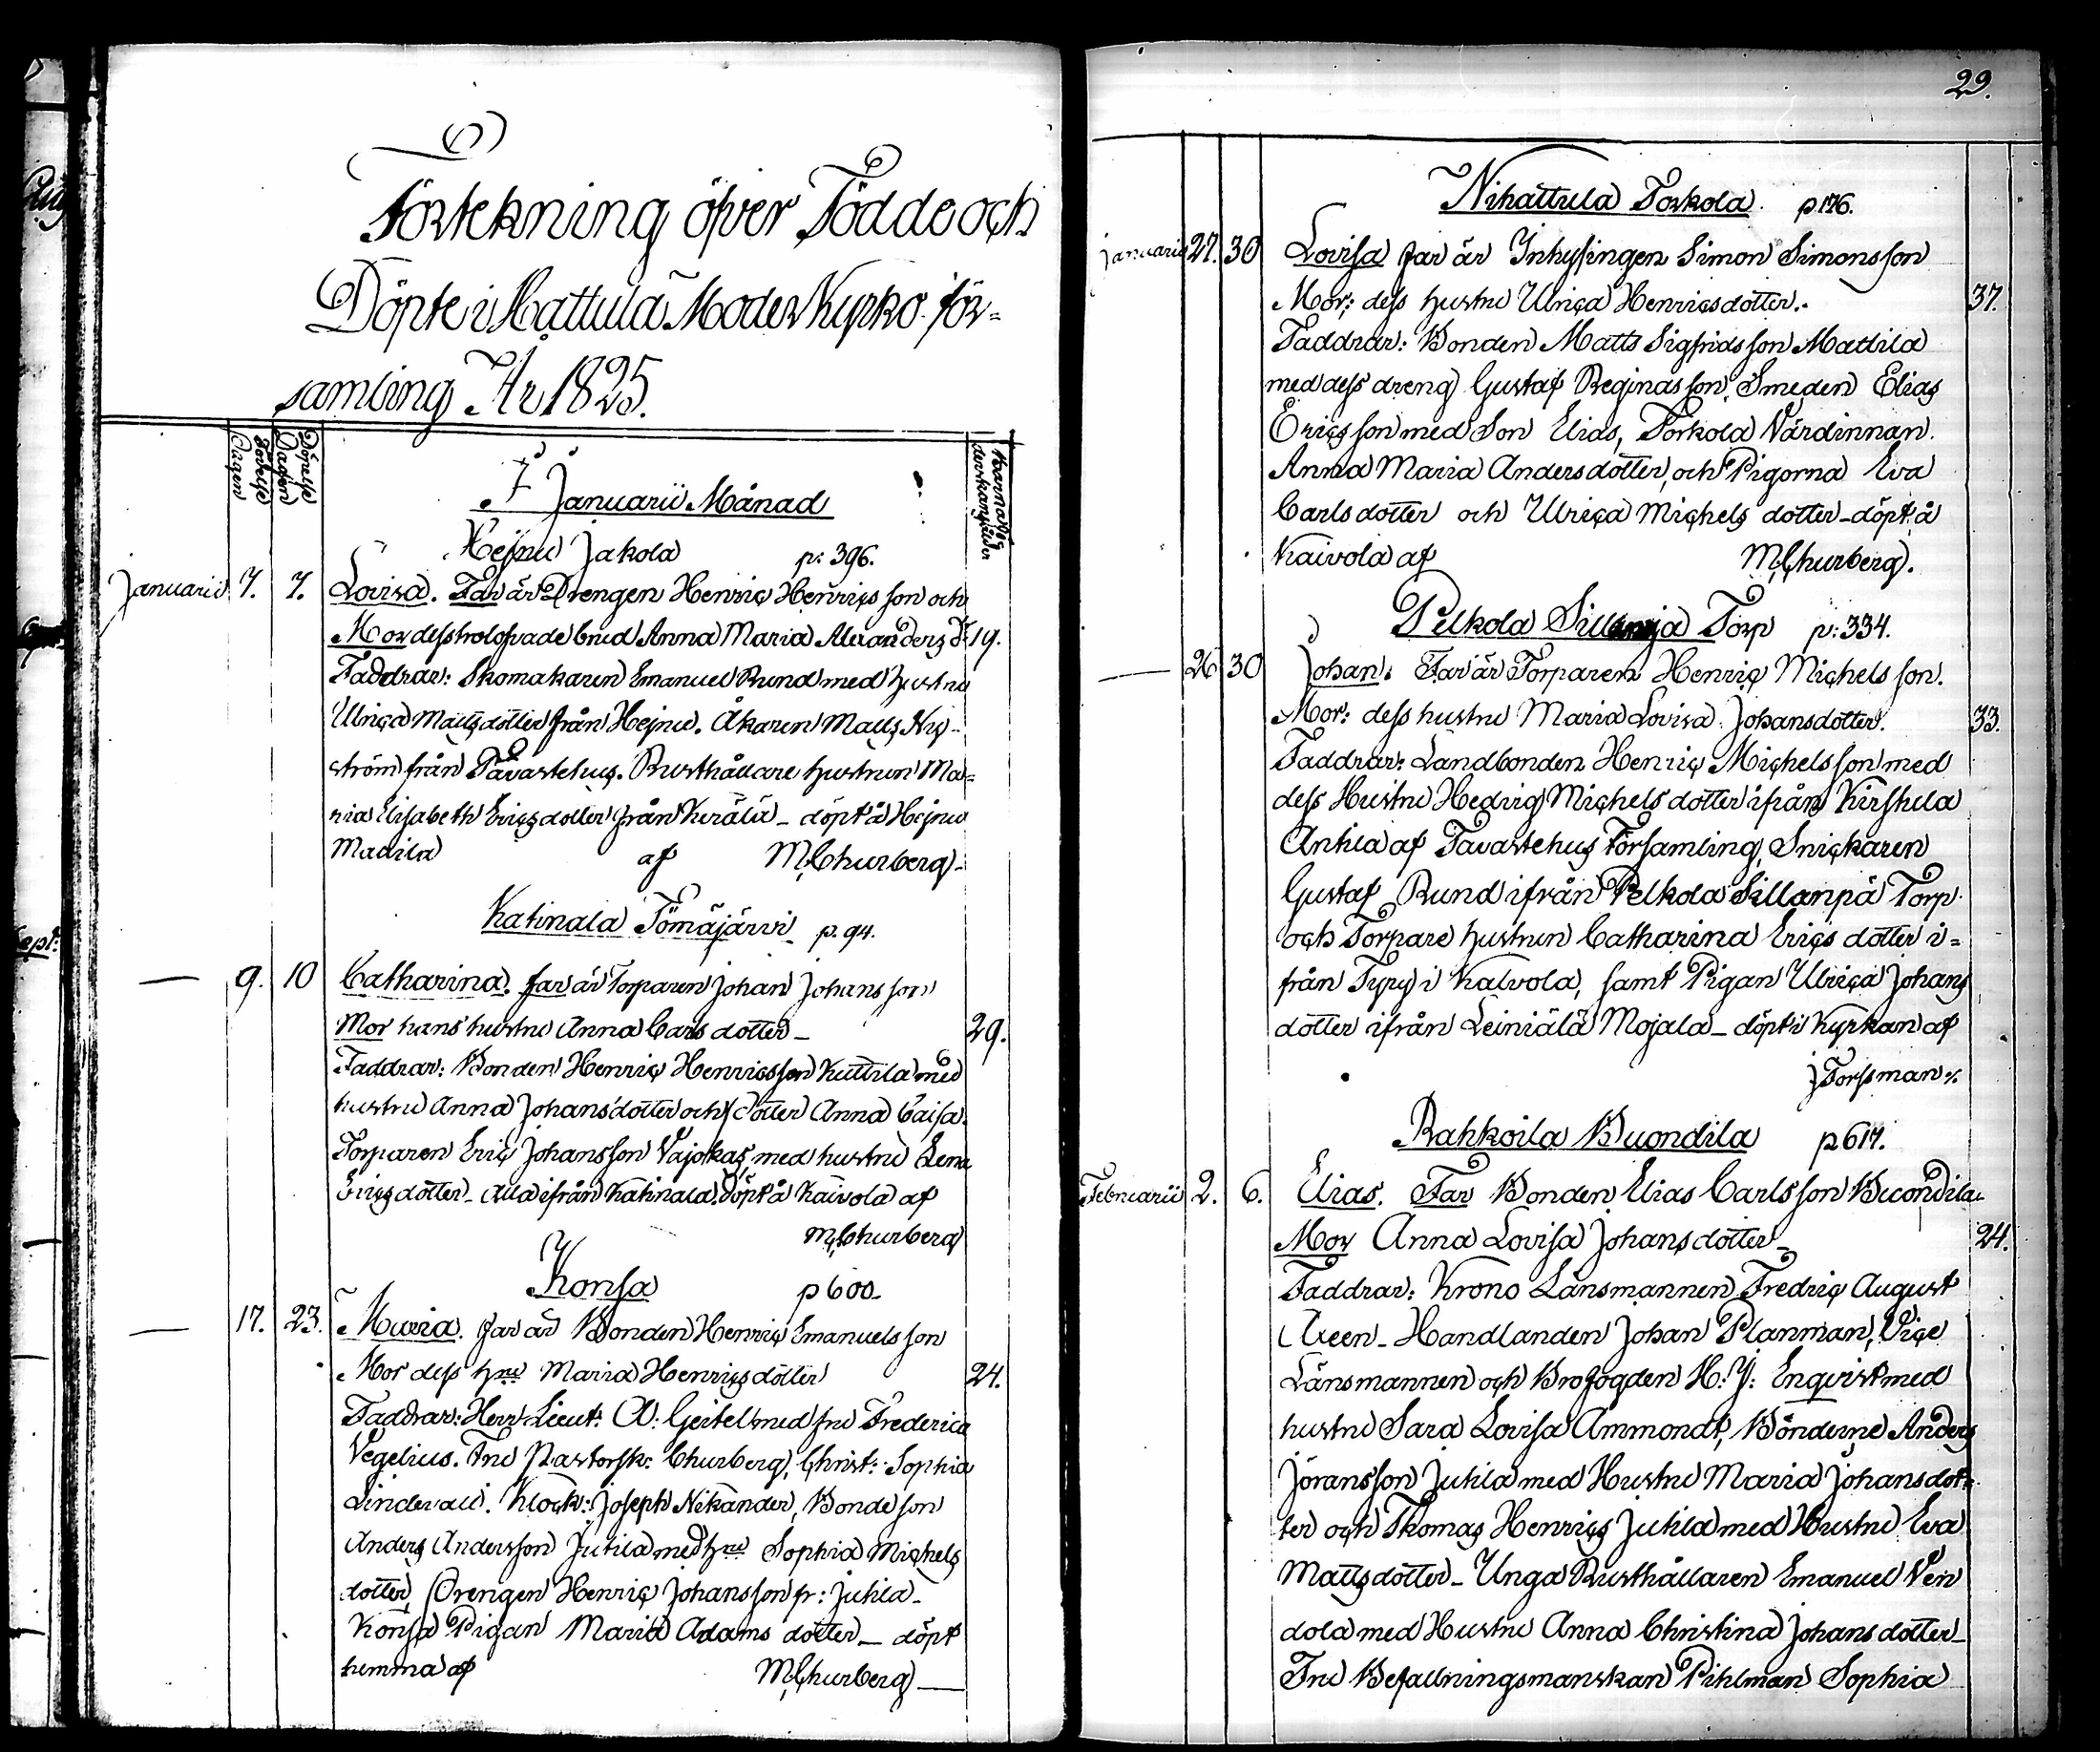 Förtekning öfver Födde och
Döpte i Hattula Moder Kyrko för-
samling År 1825.
Födelse Dagen
Döpelse Dagen
I Januarii Månad
Hejnu Jakola p: 396.
Januarii 7. 7. Lovisa. Far är Drengen Henric Henrics son och
Mor dess trolofvade brud Anna Maria Alexanders dr 19.
Faddrar: Skomakaren Emanuel Rund med hustru
Ulrica Mattsdotter från Hejnu. Åkaren Matts Ny-
ström från Tavastehus. Rusthållare hustrun Ma-
ria Elisabeth Ericsdotter från Kerälä - döpt å Hejnu
Mattila af M. Churberg -
Katinala Tömäjärvi p. 94.
— 9. 10 Catharina. far är Torparen Johan Johansson
Mor hans hustru Anna Carls dotter - 29.
Faddrar: Bonden Henric Henricsson Kuttila med
hustru Anna Johansdotter och dotter Anna Caisa.
Torparen Eric Johansson Vajokas, med hustru Lena
Ericsdotter - alla ifrån Katinala. Döpt å Kaivola af
M. Churberg
Konsa p 600.
— 17. 23. Maria. far är Bonden Henric Emanuelsson
Mor dess hru Maria Henricsdotter 24.
Faddrar: Herr Lieut: A: Geitel med fru Frederica
Vegelius. Fru Pastorsk: Churberg, Christ: Sophia
Lindevall. Klock: Joseph Nikander, Bonde son
Anders Andersson Jutila med hru Sophia Michels
dotter, Drengen Henric Johansson fr: Jutila -
Konsa Pigan Maria Adams dotter — döpt
hemma af M. Churberg —
29.
Nihattula Torkola. p 176.
Januarii 27. 30 Lovisa far är Inhysingen Simon Simonsson
Mor: dess hustru Ulrica Henricsdotter. 37.
Faddrar: Bonden Matts Sigfridsson Mattila
med dess dreng Gustaf Reginasson, Smeden Elias
Ericsson med Son Elias, Torkola Värdinnan
Anna Maria Andersdotter, och Pigorna Eva
Carls dotter och Ulrica Michels dotter - döpt å
Kaivola af M. Churberg.
Pelkola Torp p: 334.
— 26 30 Johan. Far är Torparen Henric Michelsson.
Mor: dess hustru Maria Lovisa Johansdotter. 33.
Faddrar: Landbonden Henric Michelsson med
dess Hustru Hedvig Michelsdotter ifrån Kirstula
Antila af Tavastehus Församling, Snickaren
Gustaf Rund ifrån Pelkola Sillanpä Torp
och Torpare hustrun Catharina Erics dotter i-
från Tyry i Kalvola, samt Pigan Ulrica Johans
dotter ifrån Leiniälä Mojala - döpt i Kyrkan af
J Forssman
Rahkoila Buondila p 617.
Februarii 2. 6. Elias. Far Bonden Elias Carlsson Buondila
Mor Anna Lovisa Johansdotter - 24.
Faddrar: Krono Länsmannen Fredric August
Areen - Handlanden Johan Planman, Vice
Länsmannen och Brofogden H: J: Enqvist med
hustru Sara Lovisa Ammondt, Bönderne Anders
Jöransson Jutila med Hustru Maria Johansdot-
ter och Thomas Henrics Jutila med Hustru Eva
Mattsdotter - Unga Rusthållaren Emanuel Ven
dola med Hustru Anna Christina Johansdotter -
Fru Befallningsmanskan Pihlman Sophia